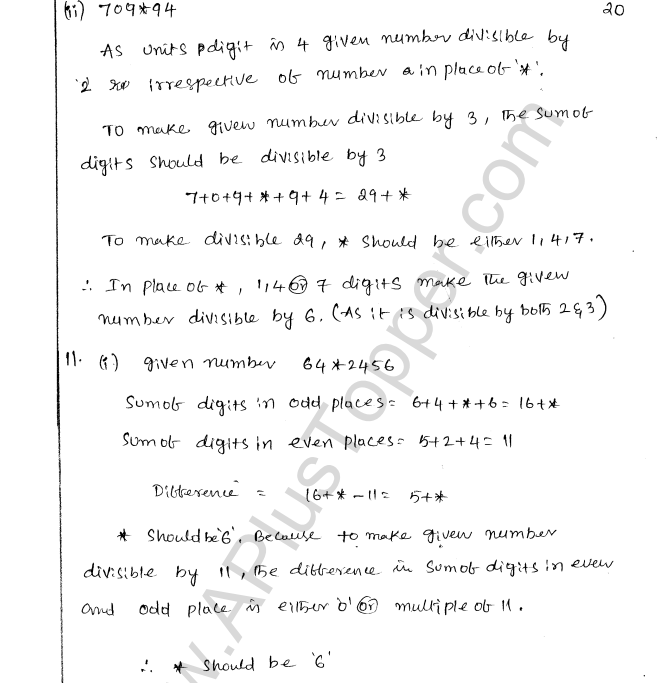 (ii) 709*94 20
As units digit is 4 given number divisible by
'2' irrespective of number a in place of '*'.
To make given number divisible by 3, the sum of
digits should be divisible by 3
7+0+9+*+9+4= 29+*
To make divisible 29, * should be either 1,4,7.
∴ In place of *, 1,4 (or) 7 digits make the given
number divisible by 6. (As it is divisible by both 2&3)
11. (i) given number 64*2456
Sum of digits in odd places= 6+4+*+6= 16+*
Sum of digits in even places= 5+2+4= 11
Difference = 16+*-11= 5+*
* Should be '6'. Because to make given number
divisible by 11, the difference in sum of digits in even
and odd place is either '0' (or) multiple of 11.
∴ * should be '6'
www.APlusTopper.com